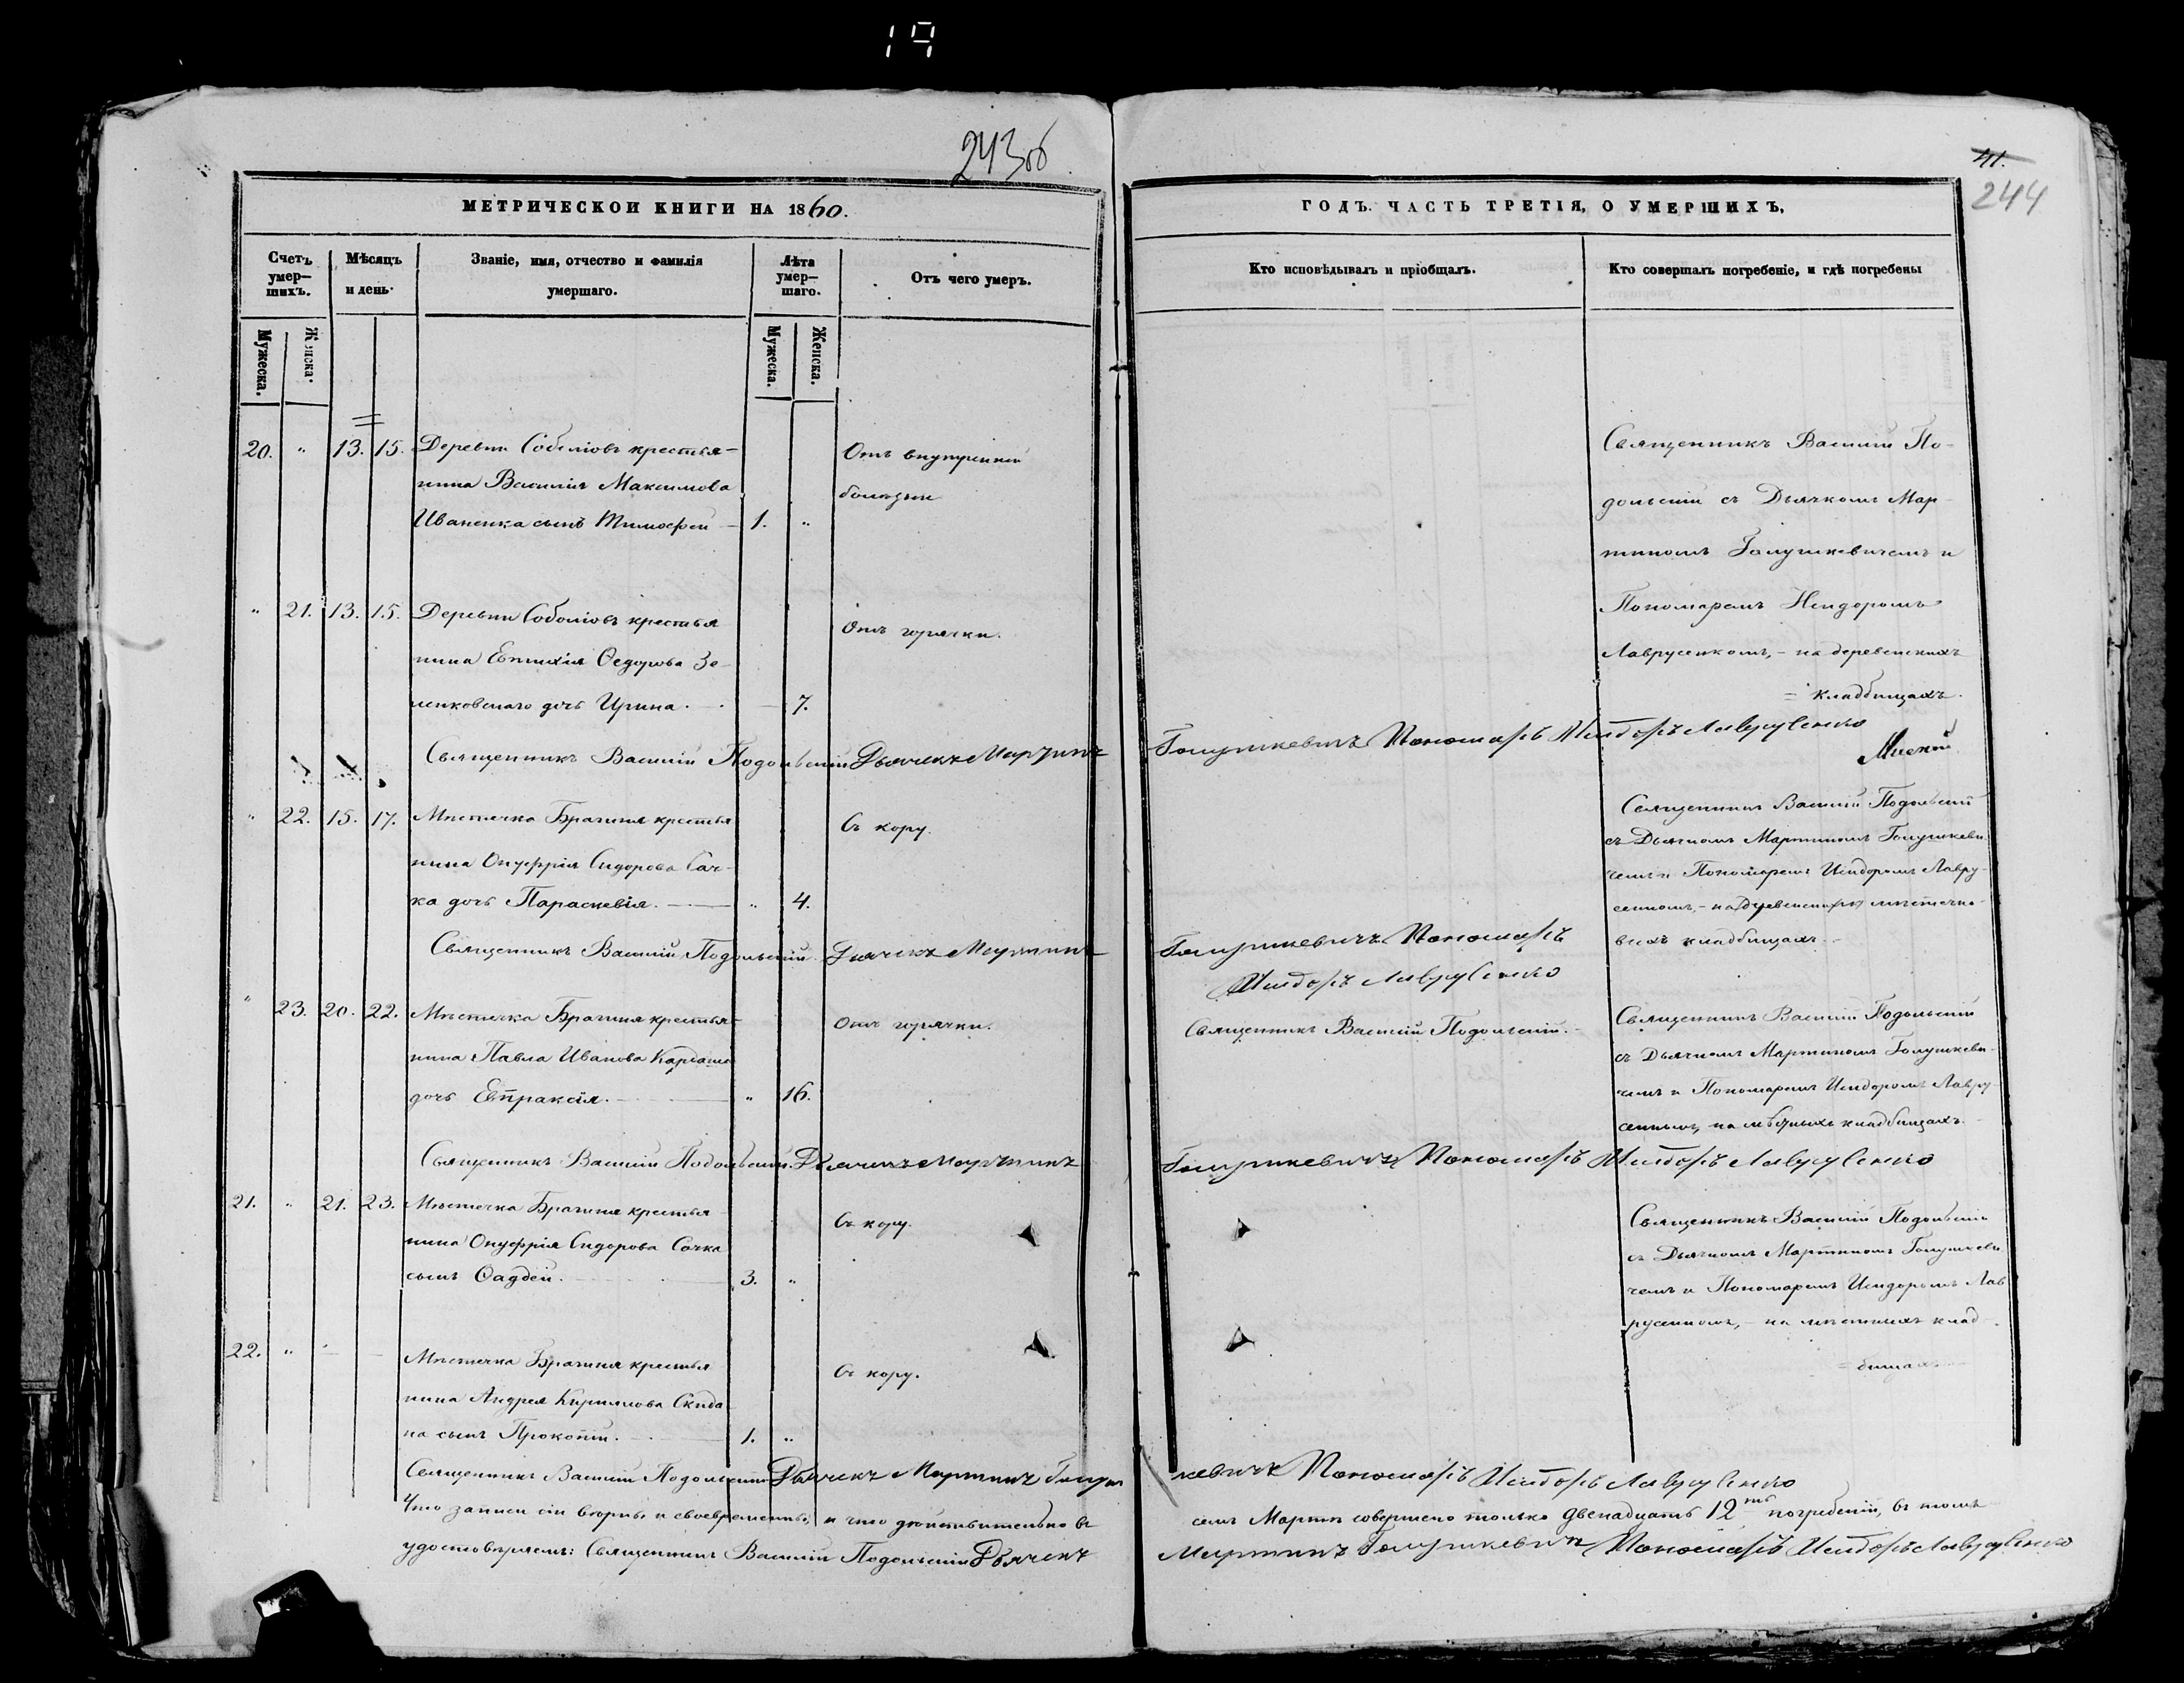 19
243 об
41.
244
МЕТРИЧЕСКОЙ КНИГИ НА 1860.
ГОДЪ. ЧАСТЬ ТРЕТІЯ, О УМЕРШИХЪ.
Счетъ умер-шихъ.
Мѣсяцъ и день.
Званіе, имя, отчество и фамилія умершаго.
Лѣта умер-шаго.
Отъ чего умеръ.
Кто исповѣдывалъ и пріобщалъ.
Кто совершалъ погребеніе, и гдѣ погребены
Мужеска.
Женска.
Мужеска.
Женска.
20. " 13. 15. Деревни Соболіовъ крестья-
нина Василія Максимова
Иваненка сынъ Тимофей 1. "
Отъ внутренней
болезни
Священникъ Василій По-
дольскій съ Дьячкомъ Мар-
тиномъ Голушкевичемъ и
Пономаремъ Исидоромъ
Лаврусенкомъ, - на деревенскихъ
кладбищахъ.
" 21. 13. 15. Деревни Соболіовъ крестья
нина Евтихія Ѳедорова Зе-
ленковскаго дочь Ирина. 7.
Отъ горячки.
Священникъ Василій Подольскій Дьячекъ Мартинъ Голушкевичъ Пономарь Исидоръ Лаврусенко
" 22. 15. 17. Мѣстечка Брагиня крестья
нина Онуфрія Сидорова Сач-
ка дочь Параскевія. " 4.
Съ кору.
Священникъ Василій Подольскій
съ Дьячкомъ Мартиномъ Голушкеви-
чемъ и Пономаремъ Исидоромъ Лавру-
сенкомъ, - на мѣстечко-
выхъ кладбищахъ.
Священникъ Василій Подольскій. Дьячекъ Мартинъ Голушкевичъ Пономарь
Исидоръ Лаврусенко
" 23. 20. 22. Мѣстечка Брагиня крестья-
нина Павла Иванова Кардаша
дочь Евпраксія. " 16.
Отъ горячки.
Священникъ Василій Подольскій.
Священникъ Василій Подольскій
съ Дьячкомъ Мартиномъ Голушкеви-
чемъ и Пономаремъ Исидоромъ Лавру-
сенкомъ, на кладбищахъ.
Священникъ Василій Подольскій. Дьячекъ Мартинъ Голушкевичъ Пономарь Исидоръ Лаврусенко
21. " 21. 23. Мѣстечка Брагиня крестья
нина Онуфрія Сидорова Сачка
сынъ Ѳаддей. 3. "
Съ кору.
Священникъ Василій Подольскій
съ Дьячкомъ Мартиномъ Голушкеви
чемъ и Пономаремъ Исидоромъ Лав
русенкомъ, - на мѣстныхъ клад-
бищахъ
22. " — — Мѣстечка Брагиня крестья
нина Андрея Кирилова Скида
на сынъ Прокопій. 1. "
Съ кору.
Священникъ Василій Подольскій Дьячекъ Мартинъ Голуш кевичъ Пономарь Исидоръ Лаврусенко
Что записи сіи вѣрны и своевременны, и что дѣйствительно въ семъ Мартѣ совершено только двенадцать 12ть погребеній, въ томъ
удостовѣряемъ: Священникъ Василій Подольскій Дьячекъ Мартинъ Голушкевичъ Пономарь Исидоръ Лаврусенко